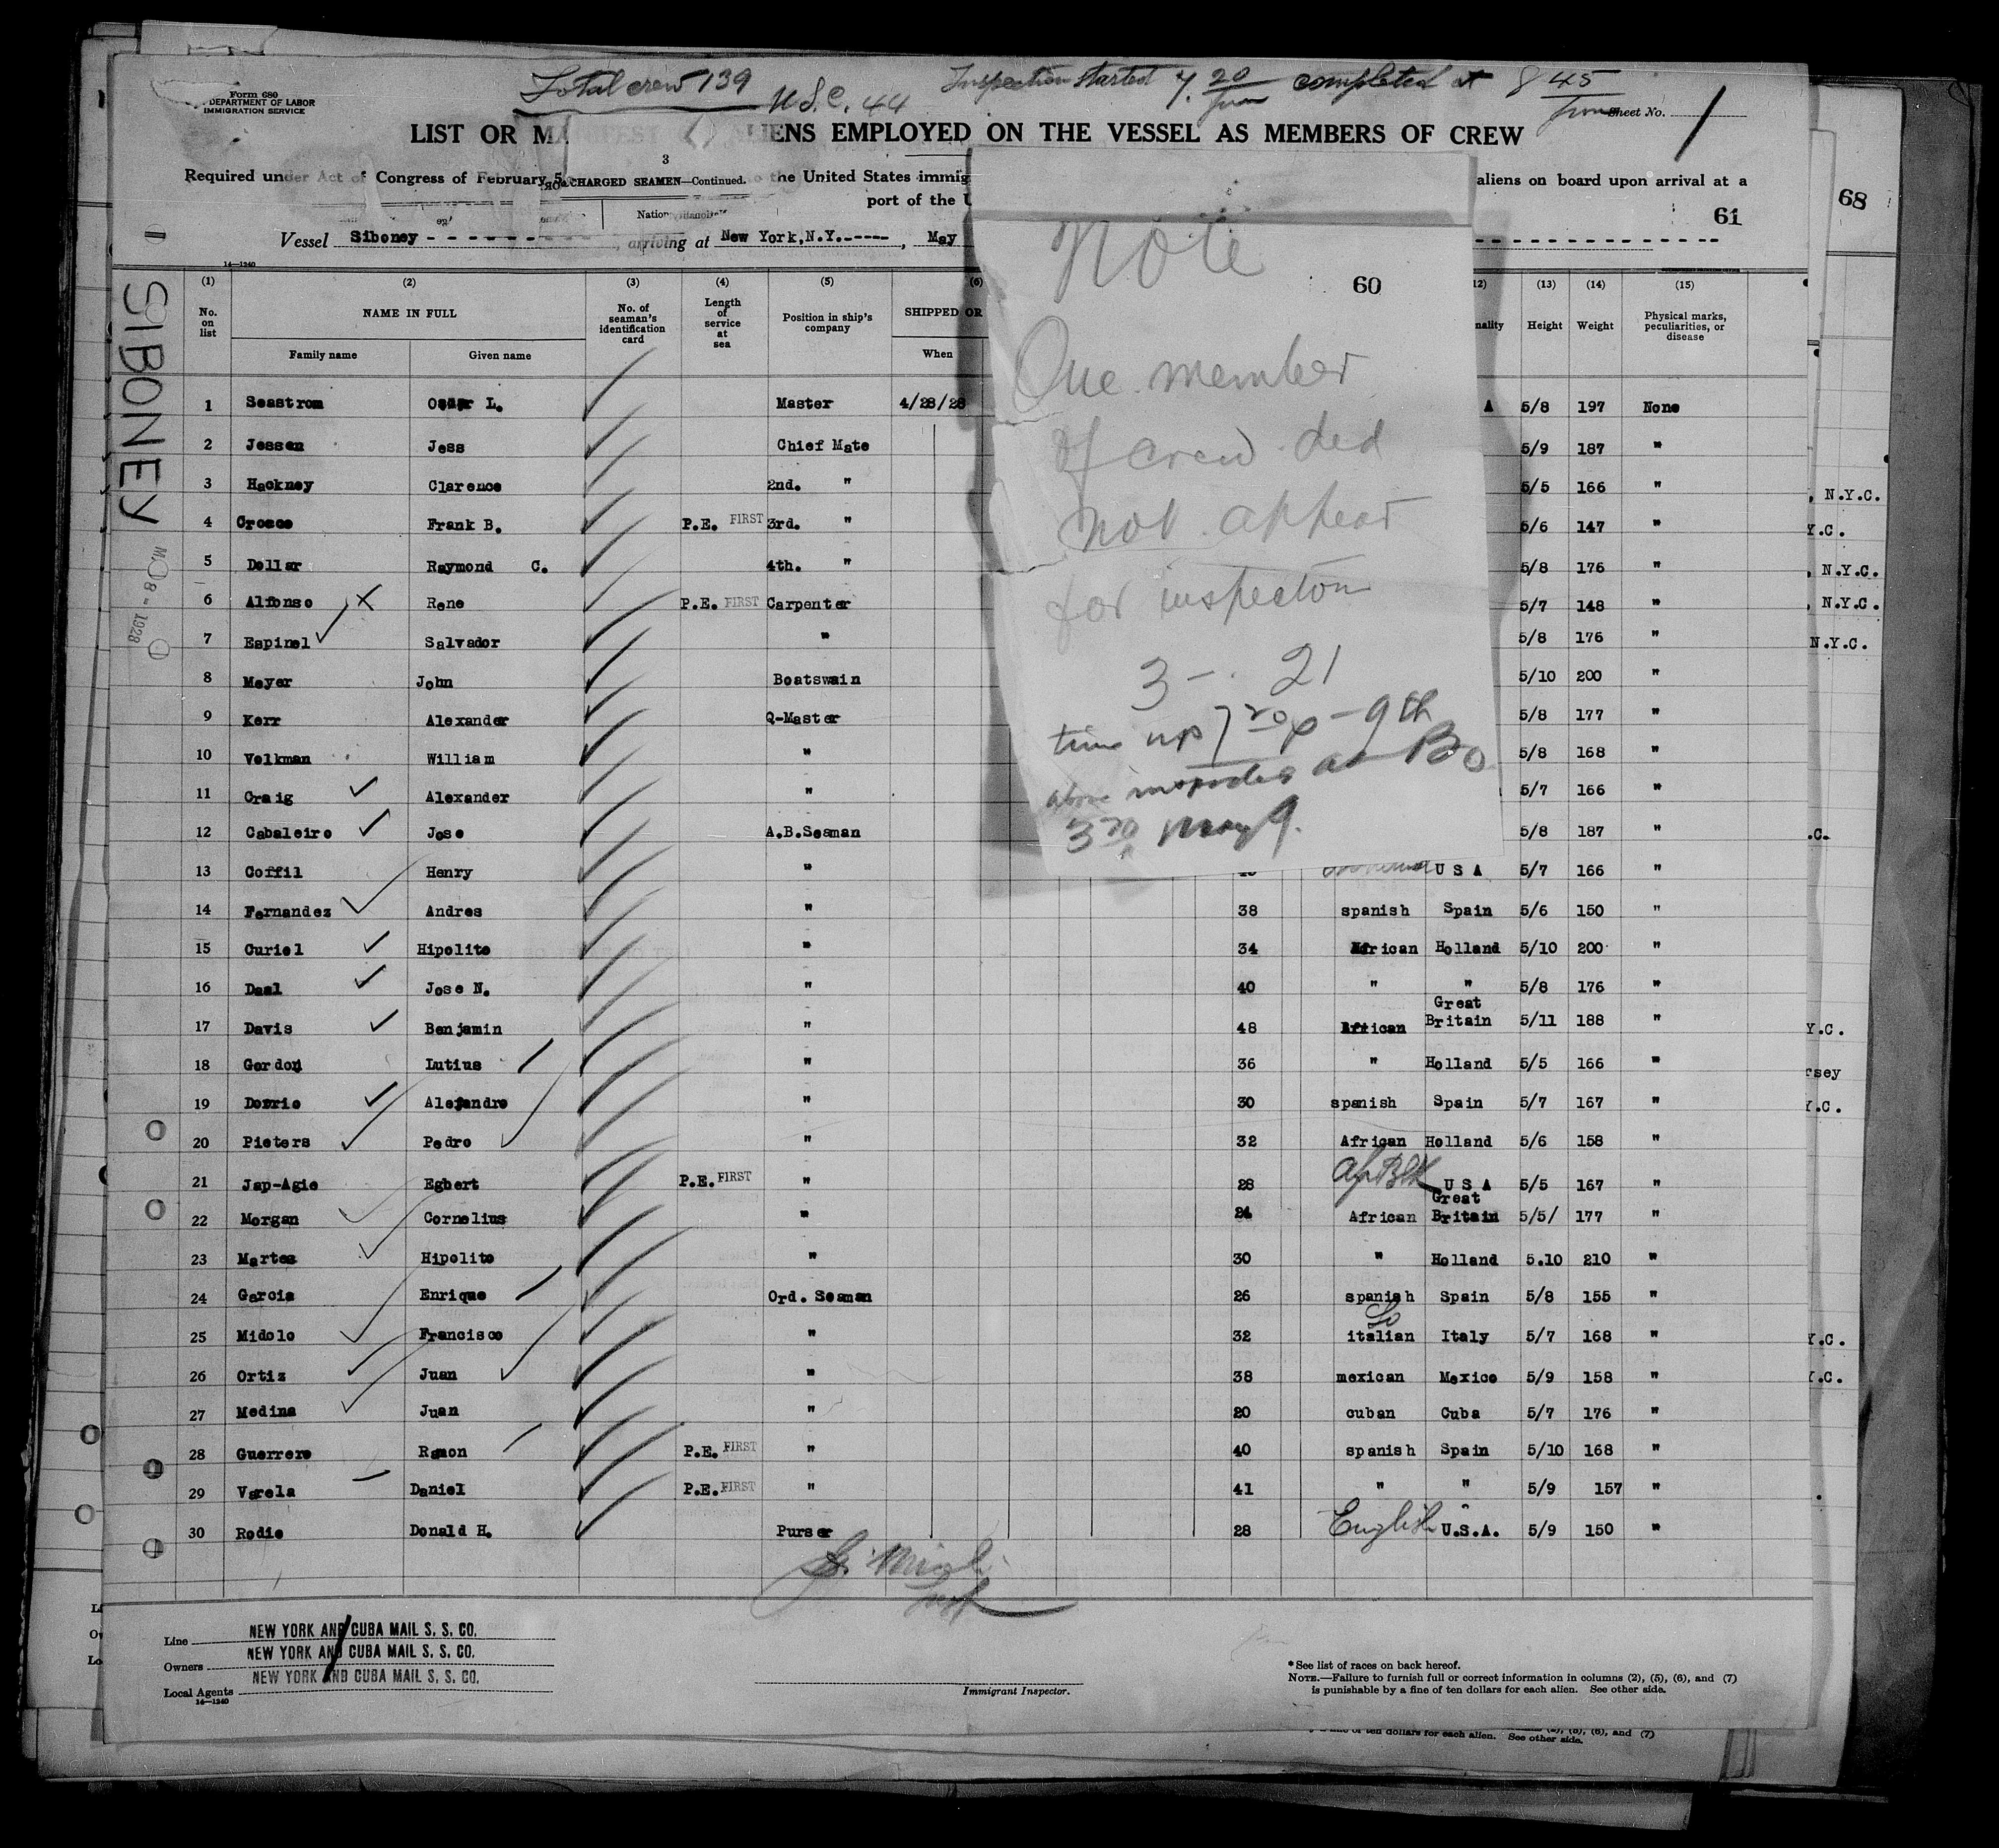 Total crew 139
U.S.C. 44
Inspection started 7.20 completed at 8 45
Form 680
DEPARTMENT OF LABOR
IMMIGRATION SERVICE
Sheet No. 1
LIST OR MANIFEST ALIENS EMPLOYED ON THE VESSEL AS MEMBERS OF CREW
3
Required under Act of Congress of February 5 CHARGED SEAMEN—Continued. to the United States immig aliens on board upon arrival at a
port of the U
61
68
Vessel Siboney arriving at New York, N.Y. May
14—1240
SIBONEY
1928
(1) (2) (3) (4) (5) (6) (12) (13) (14) (15)
No. on list NAME IN FULL No. of seaman's identification card Length of service at sea Position in ship's company SHIPPED OR nality Height Weight Physical marks, peculiarities, or disease
Family name Given name When
Note
60
One member
of crew ded
not appear
for inspecton
3 - 21
time up 7 20 p - 9th
3 May 9.
1 Seastrom Oscar L. Master 4/28/28 A 5/8 197 None
2 Jessen Jess Chief Mate 5/9 187 "
3 Hackney Clarence 2nd. " 5/5 166 " N.Y.C.
4 Crosce Frank B. P.E. FIRST 3rd. " 5/6 147 " Y.C.
5 Dollar Raymond C. 4th. " 5/8 176 " N.Y.C.
6 Alfonso X Rene P.E. FIRST Carpenter 5/7 148 " N.Y.C.
7 Espinel Salvador " 5/8 176 " N.Y.C.
8 Meyer John Boatswain 5/10 200 "
9 Kerr Alexander Q-Master 5/8 177 "
10 Volkman William " 5/8 168 "
11 Craig Alexander " 5/7 166 "
12 Cabaleiro Jose A.B.Seaman 5/8 187 " .C.
13 Coffil Henry " U S A 5/7 166 "
14 Fernandez Andres " 38 spanish Spain 5/6 150 "
15 Curiel Hipolito " 34 African Holland 5/10 200 "
16 Daal Jose N. " 40 " " 5/8 176 "
17 Davis Benjamin " 48 African Great Britain 5/11 188 " Y.C.
18 Gordon Lutius " 36 " Holland 5/5 166 " rsey
19 Dorrio Alejandro " 30 spanish Spain 5/7 167 " Y.C.
20 Pieters Pedro " 32 African Holland 5/6 158 "
21 Jap-Agie Egbert P.E. FIRST " 28 Af Blk U S A 5/5 167 "
22 Morgan Cornelius " 24 African Great Britain 5/5/ 177 "
23 Martes Hipolito " 30 " Holland 5.10 210 "
24 Garcia Enrique Ord. Seaman 26 spanish Spain 5/8 155 "
25 Midolo Francisco " 32 So italian Italy 5/7 168 " Y.C.
26 Ortiz Juan " 38 mexican Mexico 5/9 158 " Y.C.
27 Medina Juan " 20 cuban Cuba 5/7 176 "
28 Guerrero Ramon P.E. FIRST " 40 spanish Spain 5/10 168 "
29 Varela Daniel P.E. FIRST " 41 " " 5/9 157 "
30 Rodie Donald H. Purser 28 English U.S.A. 5/9 150 "
Line NEW YORK AND CUBA MAIL S. S. CO.
Owners NEW YORK AND CUBA MAIL S. S. CO.
Local Agents NEW YORK AND CUBA MAIL S. S. CO.
14—1240
Immigrant Inspector.
* See list of races on back hereof.
NOTE.—Failure to furnish full or correct information in columns (2), (5), (6), and (7)
is punishable by a fine of ten dollars for each alien. See other side.
of ten dollars for each alien. See other side. (5), (6), and (7)